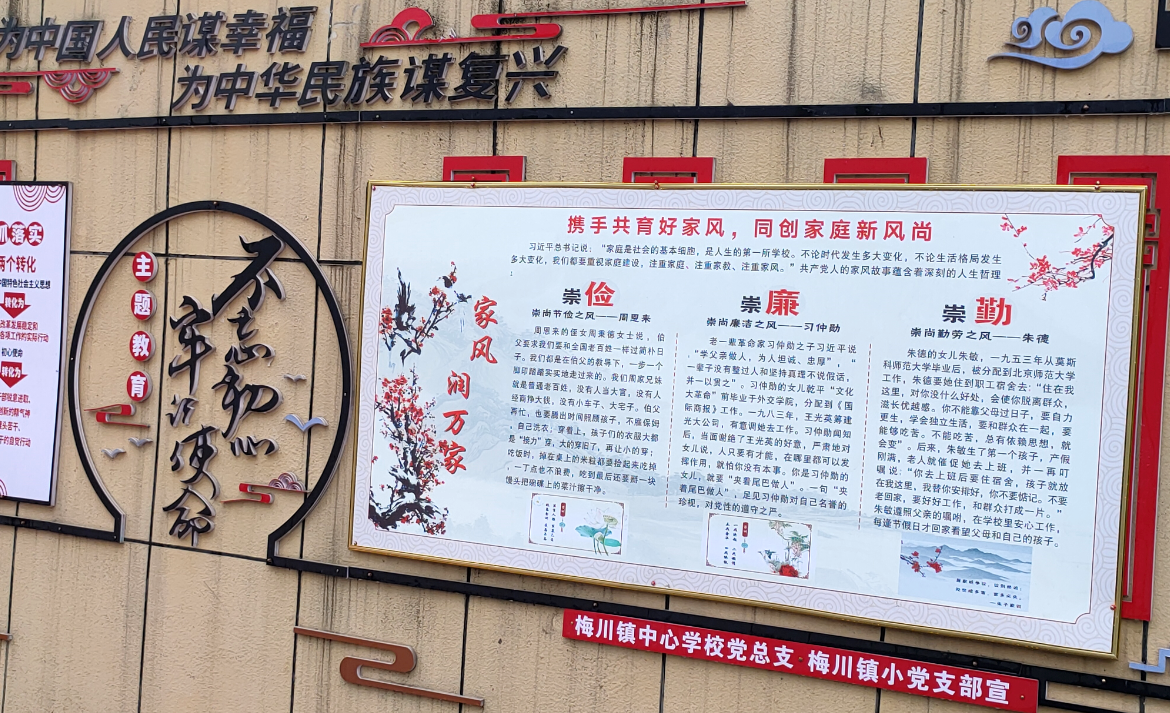 为中国人民谋幸福
为中华民族谋复兴
抓落实
两个转化
中国特色社会主义思想
转化为
改革发展稳定和
各项工作的实际行动
初心使命
转化为
创新的精气神
埋头苦干、
干的自觉行动
主题教育
不忘初心
牢记使命
携手共育好家风，同创家庭新风尚
习近平总书记说：“家庭是社会的基本细胞，是人生的第一所学校。不论时代发生多大变化，不论生活格局发生
多大变化，我们都要重视家庭建设，注重家庭、注重家教、注重家风。”共产党人的家风故事蕴含着深刻的人生哲理
：
家风润万家
崇俭
崇尚节俭之风——周恩来
周恩来的侄女周秉德女士说，伯
父要求我们要和全国老百姓一样过简朴日
子。我们都是在伯父的教导下，一步一个
脚印踏踏实实地走过来的。我们周家兄妹
就是普通老百姓，没有人当大官，没有人
经商挣大钱，没有小车子、大宅子。伯父
再忙，也要腾出时间照顾孩子，不雇保姆
，自己洗衣；穿着上，孩子们的衣服大都
是“接力”穿，大的穿旧了，再让小的穿；
吃饭时，掉在桌上的米粒都要捡起来吃掉
，一丁点也不浪费，吃到最后还要掰一块
馒头把碗碟上的菜汁擦干净。
崇廉
崇尚廉洁之风——习仲勋
老一辈革命家习仲勋之子习近平说
，“学父亲做人，为人坦诚、忠厚”，“
一辈子没有整过人和坚持真理不说假话，
并一以贯之”。习仲勋的女儿乾平“文化
大革命”前毕业于外交学院，分配到《国
际商报》工作。一九八三年，王光英筹建
光大公司，有意调她去工作。习仲勋闻知
后，当面谢绝了王光英的好意，严肃地对
女儿说，人只要有才能，在哪里都可以发
挥作用，就怕你没有本事。你是习仲勋的
女儿，就要“夹着尾巴做人”。一句“夹
着尾巴做人”，足见习仲勋对自己名誉的
珍视，对党性的遵守之严。
崇勤
崇尚勤劳之风——朱德
朱德的女儿朱敏，一九五三年从莫斯
科师范大学毕业后，被分配到北京师范大学
工作，朱德要她住到职工宿舍去：“住在我
这里，对你没什么好处，会使你脱离群众，
滋长优越感。你不能靠父母过日子，要自力
更生，学会独立生活，要和群众在一起，要
能够吃苦。不能吃苦，总有依赖思想，就
会变”。后来，朱敏生了第一个孩子，产假
刚满，老人就催促她去上班，并一再叮
嘱说：“你去上班后要住宿舍，孩子就放
在我这里，我替你安排好，你不要惦记。不要
老回家，要好好工作，和群众打成一片。”
朱敏遵照父亲的嘱咐，在学校里安心工作，
每逢节假日才回家看望父母和自己的孩子。
梅川镇中心学校党总支 梅川镇小党支部宣